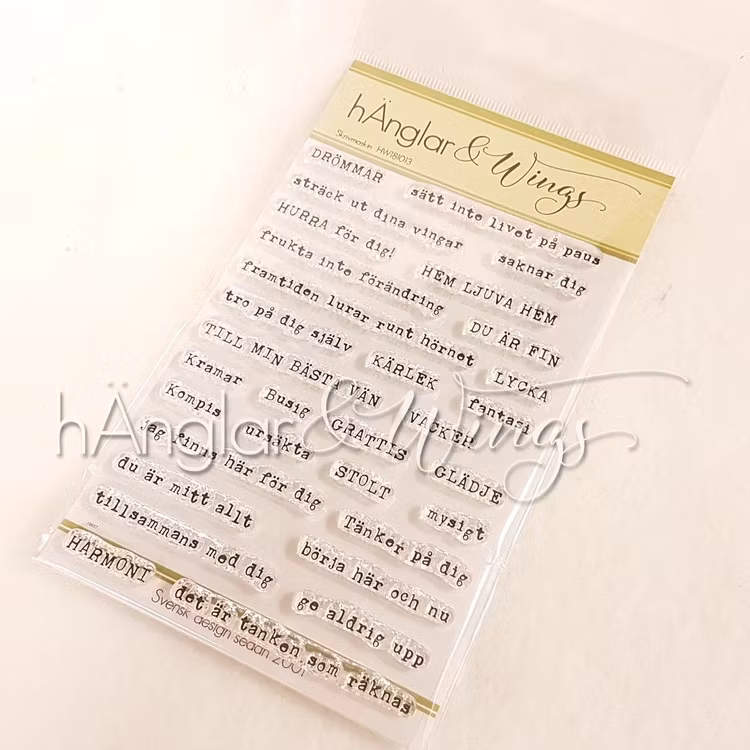 hÄnglar & Wings
Skrivmaskin HW181013
DRÖMMAR
sätt inte livet på paus
sträck ut dina vingar
saknar dig
HURRA för dig!
HEM LJUVA HEM
frukta inte förändring
DU ÄR FIN
framtiden lurar runt hörnet
LYCKA
tro på dig själv
KÄRLEK
fantasi
TILL MIN BÄSTA VÄN
VACKER
Kramar
Busig
GRATTIS
GLÄDJE
Kompis
ursäkta
STOLT
mysigt
jag finns här för dig
Tänker på dig
du är mitt allt
börja här och nu
tillsammans med dig
ge aldrig upp
HARMONI
det är tanken som räknas
Svensk design sedan 2001
hÄnglar & Wings